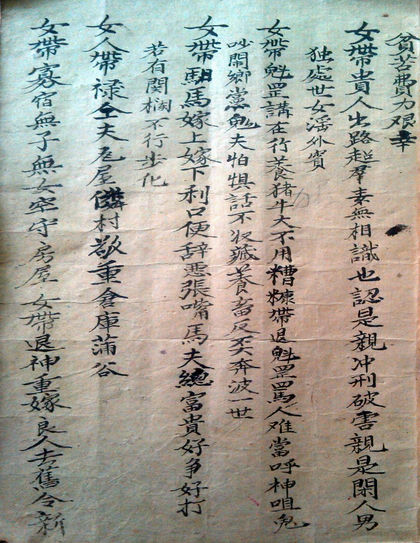 貧苦費力艰辛
女帶貴人出路超羣素無相識也認是親冲刑破害親是閑人男
独處世女淫外賓
女帶魁罡講在行养猪牛大不用糟糠帶退魁罡罵人难當呼神咀鬼
吵鬧鄉党鬼夫怕惧話不收藏养畜反不奔波一世
女帶馹馬嫁上嫁下利口便辞恶張嘴馬夫總富貴好争好打
若有闗欄不行步化
女人帶禄全夫危屋隣村敬重倉庫蒲谷
女帶寡宿無子無女空守房屋女帶退神重嫁良人去舊令新